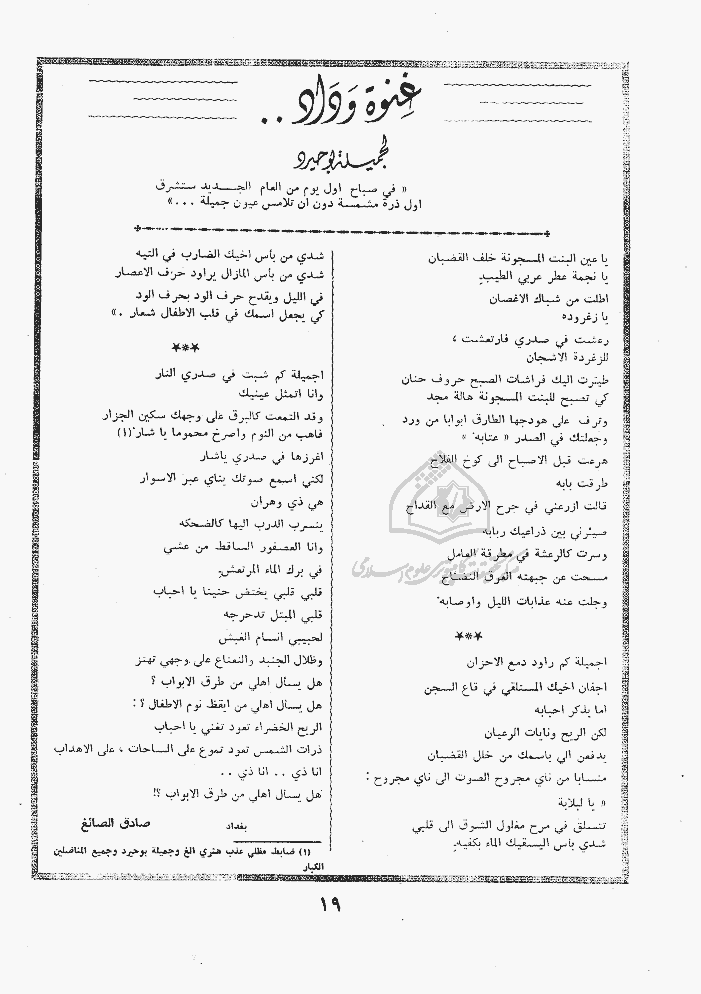 غنوة وداد ..
لجميلة بوحيرد
« في صباح اول يوم من العام الجديد ستشرق
اول ذرة مشمسة دون ان تلامس عيون جميلة ... »
يا عين البنت المسجونة خلف القضبان
يا نجمة عطر عربي الطيب
اطلت من شباك الاغصان
يا زغروده
رعشت في صدري فارتعشت ،
للزغردة الاشجان
طيرت اليك فراشات الصبح حروف حنان
كي تصبح للبنت المسجونة هالة مجد
وترف على هودجها الطارق ابوابا من ورد
وجعلتك في الصدر « عتابه »
هرعت قبل الاصباح الى كوخ الفلاح
طرقت بابه
قالت ازرعني في جرح الارض مع القداح
صيرني بين ذراعيك ربابه
وسرت كالرعشة في مطرقة العامل
مسحت عن جبهته العرق النضاح
وجلت عنه عذابات الليل واوصابه
***
اجميلة كم راود دمع الاحزان
اجفان اخيك المستلقي في قاع السجن
اما يذكر احبابه
لكن الريح ونايات الرعيان
يدفعن الي باسمك من خلل القضبان
منسابا من ناي مجروح الصوت الى ناي مجروح :
« يا لبلابة
تتسلق في مرح مغلول الشوق الى قلبي
شدي باس اليسقيك الماء بكفيه
شدي من باس اخيك الضارب في التيه
شدي من باس المازال يراود حرف الاعصار
في الليل ويقدح حرف الود بحرف الود
كي يجعل اسمك في قلب الاطفال شعار . »
***
اجميلة كم شبت في صدري النار
وانا اتمثل عينيك
وقد التمعت كالبرق على وجهك سكين الجزار
فاهب من النوم واصرخ محموما يا شار (١)
اغرزها في صدري ياشار
لكني اسمع صوتك يناي عبر الاسوار
هي ذي وهران
ينسرب الدرب اليها كالضحكه
وانا العصفور الساقط من عشي
في برك الماء المرتعش
قلبي قلبي يختض حنينا يا احباب
قلبي المبتل تدحرجه
لحبيبي انسام الغبش
وظلال الجنبد والنعناع على وجهي تهتز
هل يسال اهلي من طرق الابواب ؟
هل يسال اهلي من ايقظ نوم الاطفال ؟ :
الريح الخضراء تعود تغني يا احباب
ذرات الشمس تعود تموع على الساحات ، على الاهداب
انا ذي .. انا ذي ..
هل يسال اهلي من طرق الابواب ؟!
بغداد صادق الصائغ
(١) ضابط مظلي عذب هنري الغ وجميلة بوحيرد وجميع المناضلين
الكبار
١٩